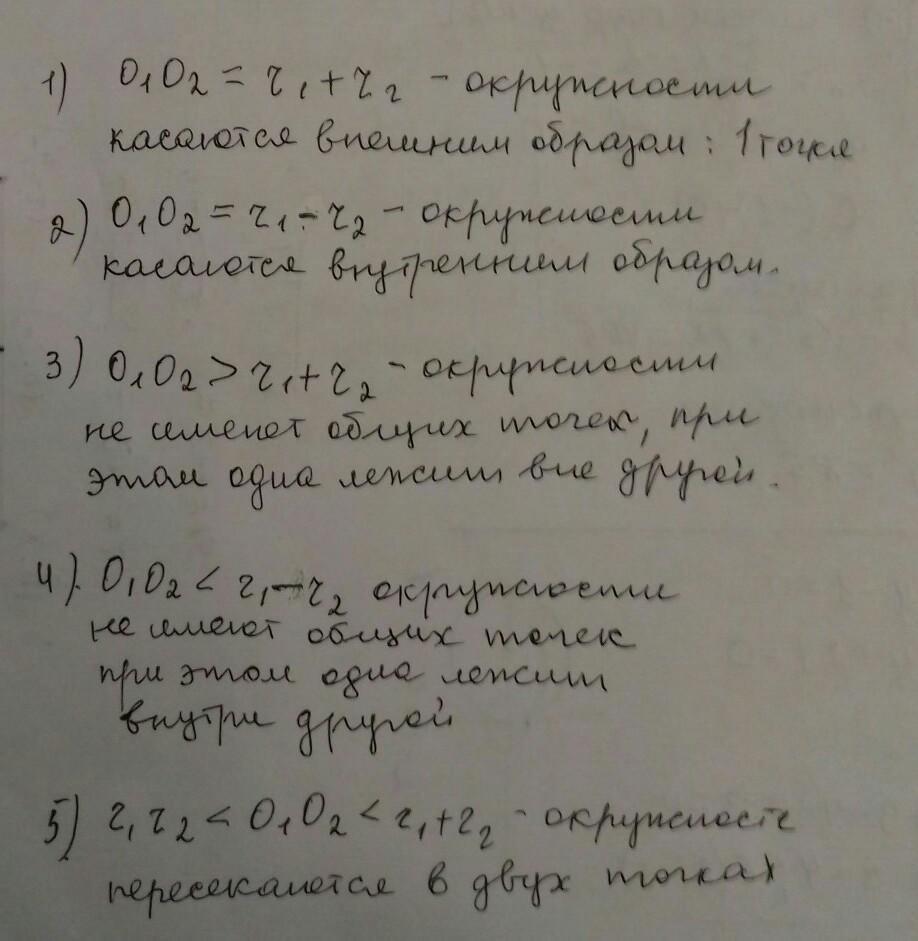 1) O₁O₂ = r₁ + r₂ – окружности
касаются внешним образом : 1 точка
2) O₁O₂ = r₁ - r₂ – окружности
касаются внутренним образом.
3) O₁O₂ > r₁ + r₂ – окружности
не имеют общих точек, при
этом одна лежит вне другой.
4). O₁O₂ < r₁ – r₂ окружности
не имеют общих точек
при этом одна лежит
внутри другой
5) r₁ r₂ < O₁O₂ < r₁ + r₂ - окружности
пересекаются в двух точках